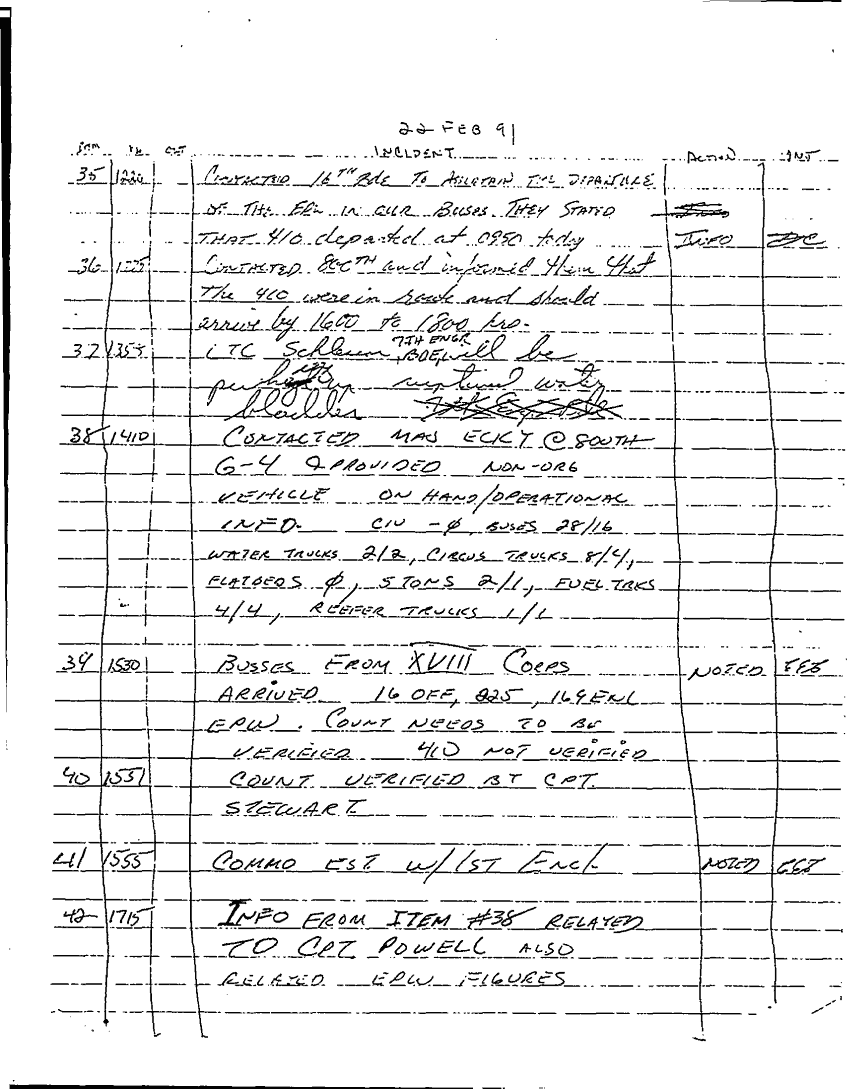 22 FEB 91
ITM IN OUT INCIDENT ACTION INT
35 1220 CONTACTED 16TH BDE TO THE DEPARTURE
OF THE EPW IN OUR BUSES. THEY STATED
THAT 410 departed at 0950 today INFO
36 CONTACTED 800TH and informed them that
The 410 were in route and should
arrive by 1600 to 1800 hrs.
37 1355 LTC 7TH ENGR BDE, will be
ruptured water
bladder
38 1410 CONTACTED MAJ @ 800TH
G-4 & PROVIDED NON-ORG
VEHICLE ON HAND/OPERATIONAL
INFO. CIV - Ø, BUSES 28/16
WATER TRUCKS 2/2, CIRCUS TRUCKS 8/4,
FLATBEDS Ø, 5 TONS 2/1, FUEL TRKS
4/4, REEFER TRUCKS 1/1
39 1530 BUSSES FROM XVIII CORPS NOTED
ARRIVED 16 OFF, 225, 169 ENL
EPW. COUNT NEEDS TO BE
VERIFIED 410 NOT VERIFIED
40 1551 COUNT VERIFIED BY CPT.
STEWART
41 1555 COMMO EST W/ 1ST Encl. NOTED
42 1715 INFO FROM ITEM #38 RELAYED
TO CPT. POWELL ALSO
RELATED EPW FIGURES